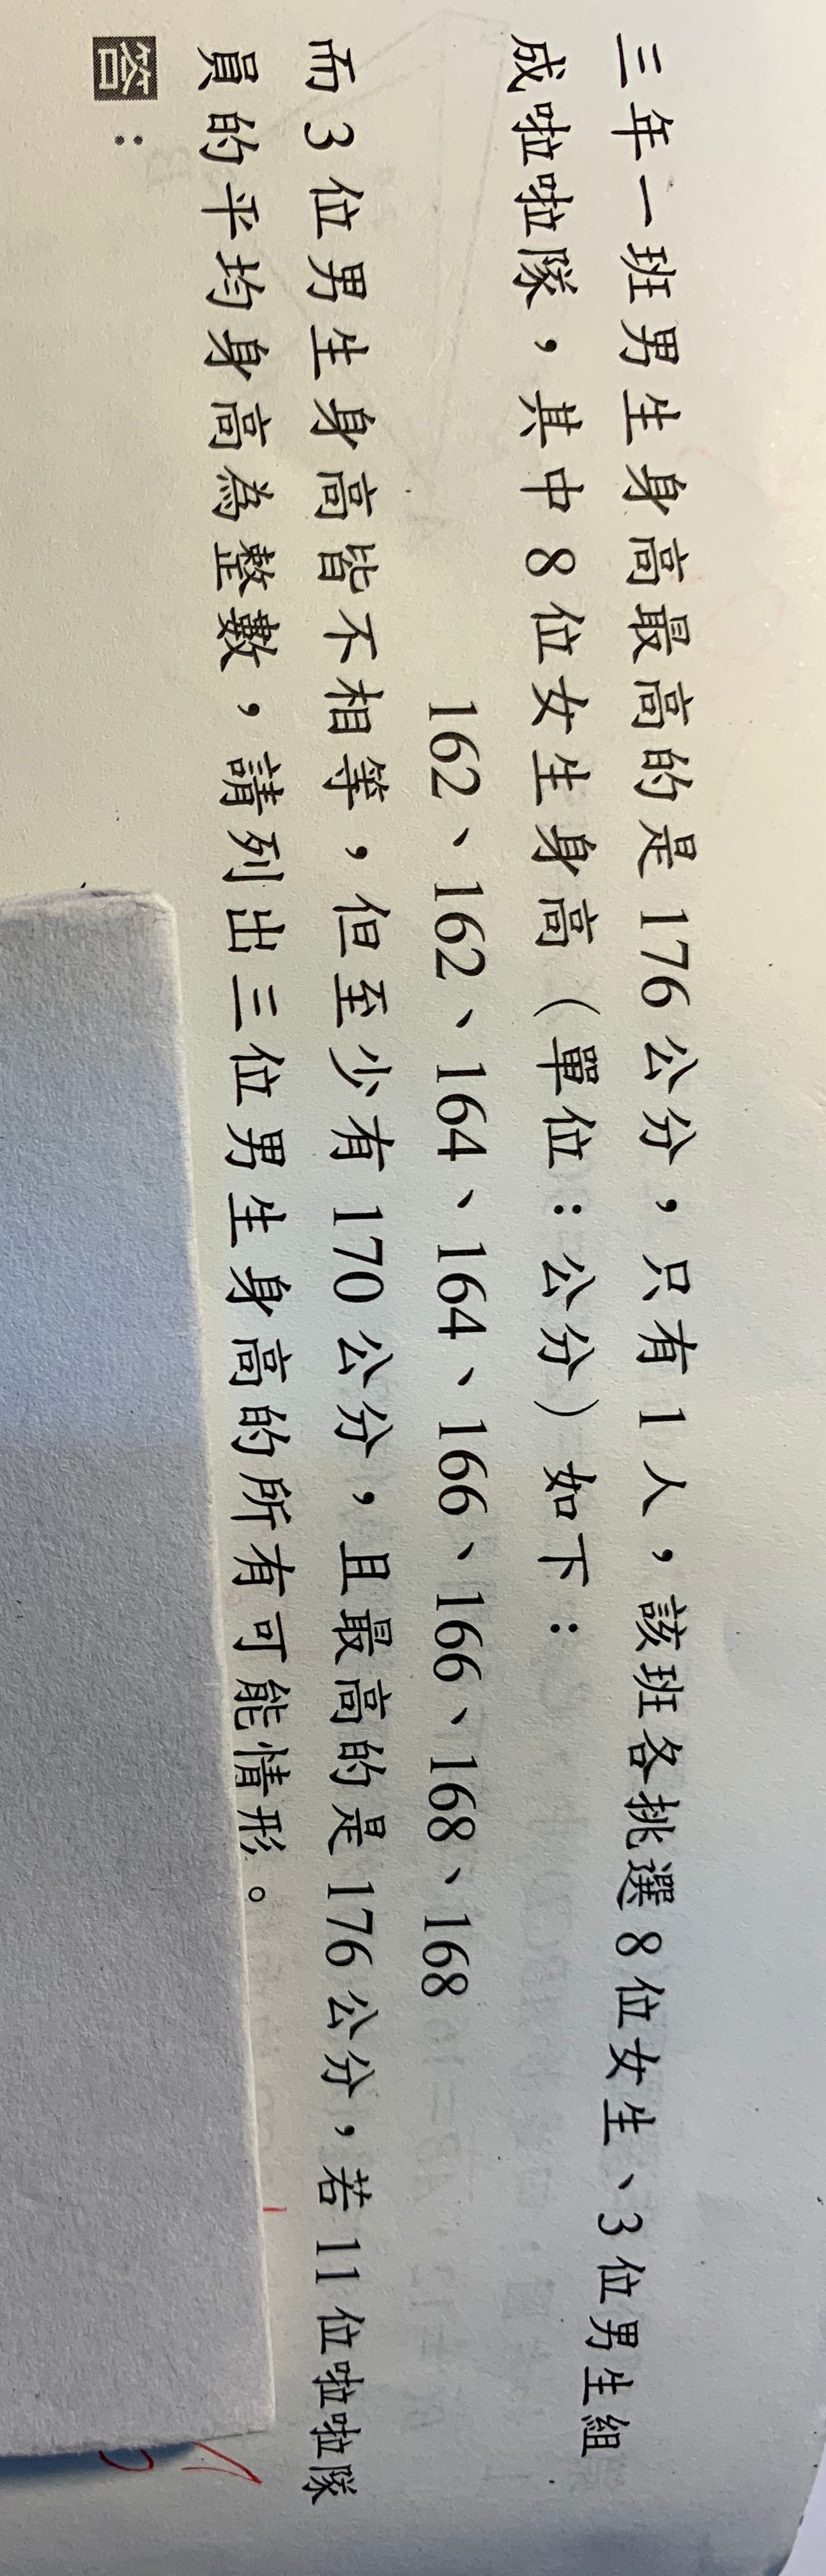 三年一班男生身高最高的是176公分，只有1人，該班各挑選8位女生、3位男生組
成啦啦隊，其中8位女生身高（單位：公分）如下：
162、162、164、164、166、166、168、168
而3位男生身高皆不相等，但至少有170公分，且最高的是176公分，若11位啦啦隊
員的平均身高為整數，請列出三位男生身高的所有可能情形。
答：